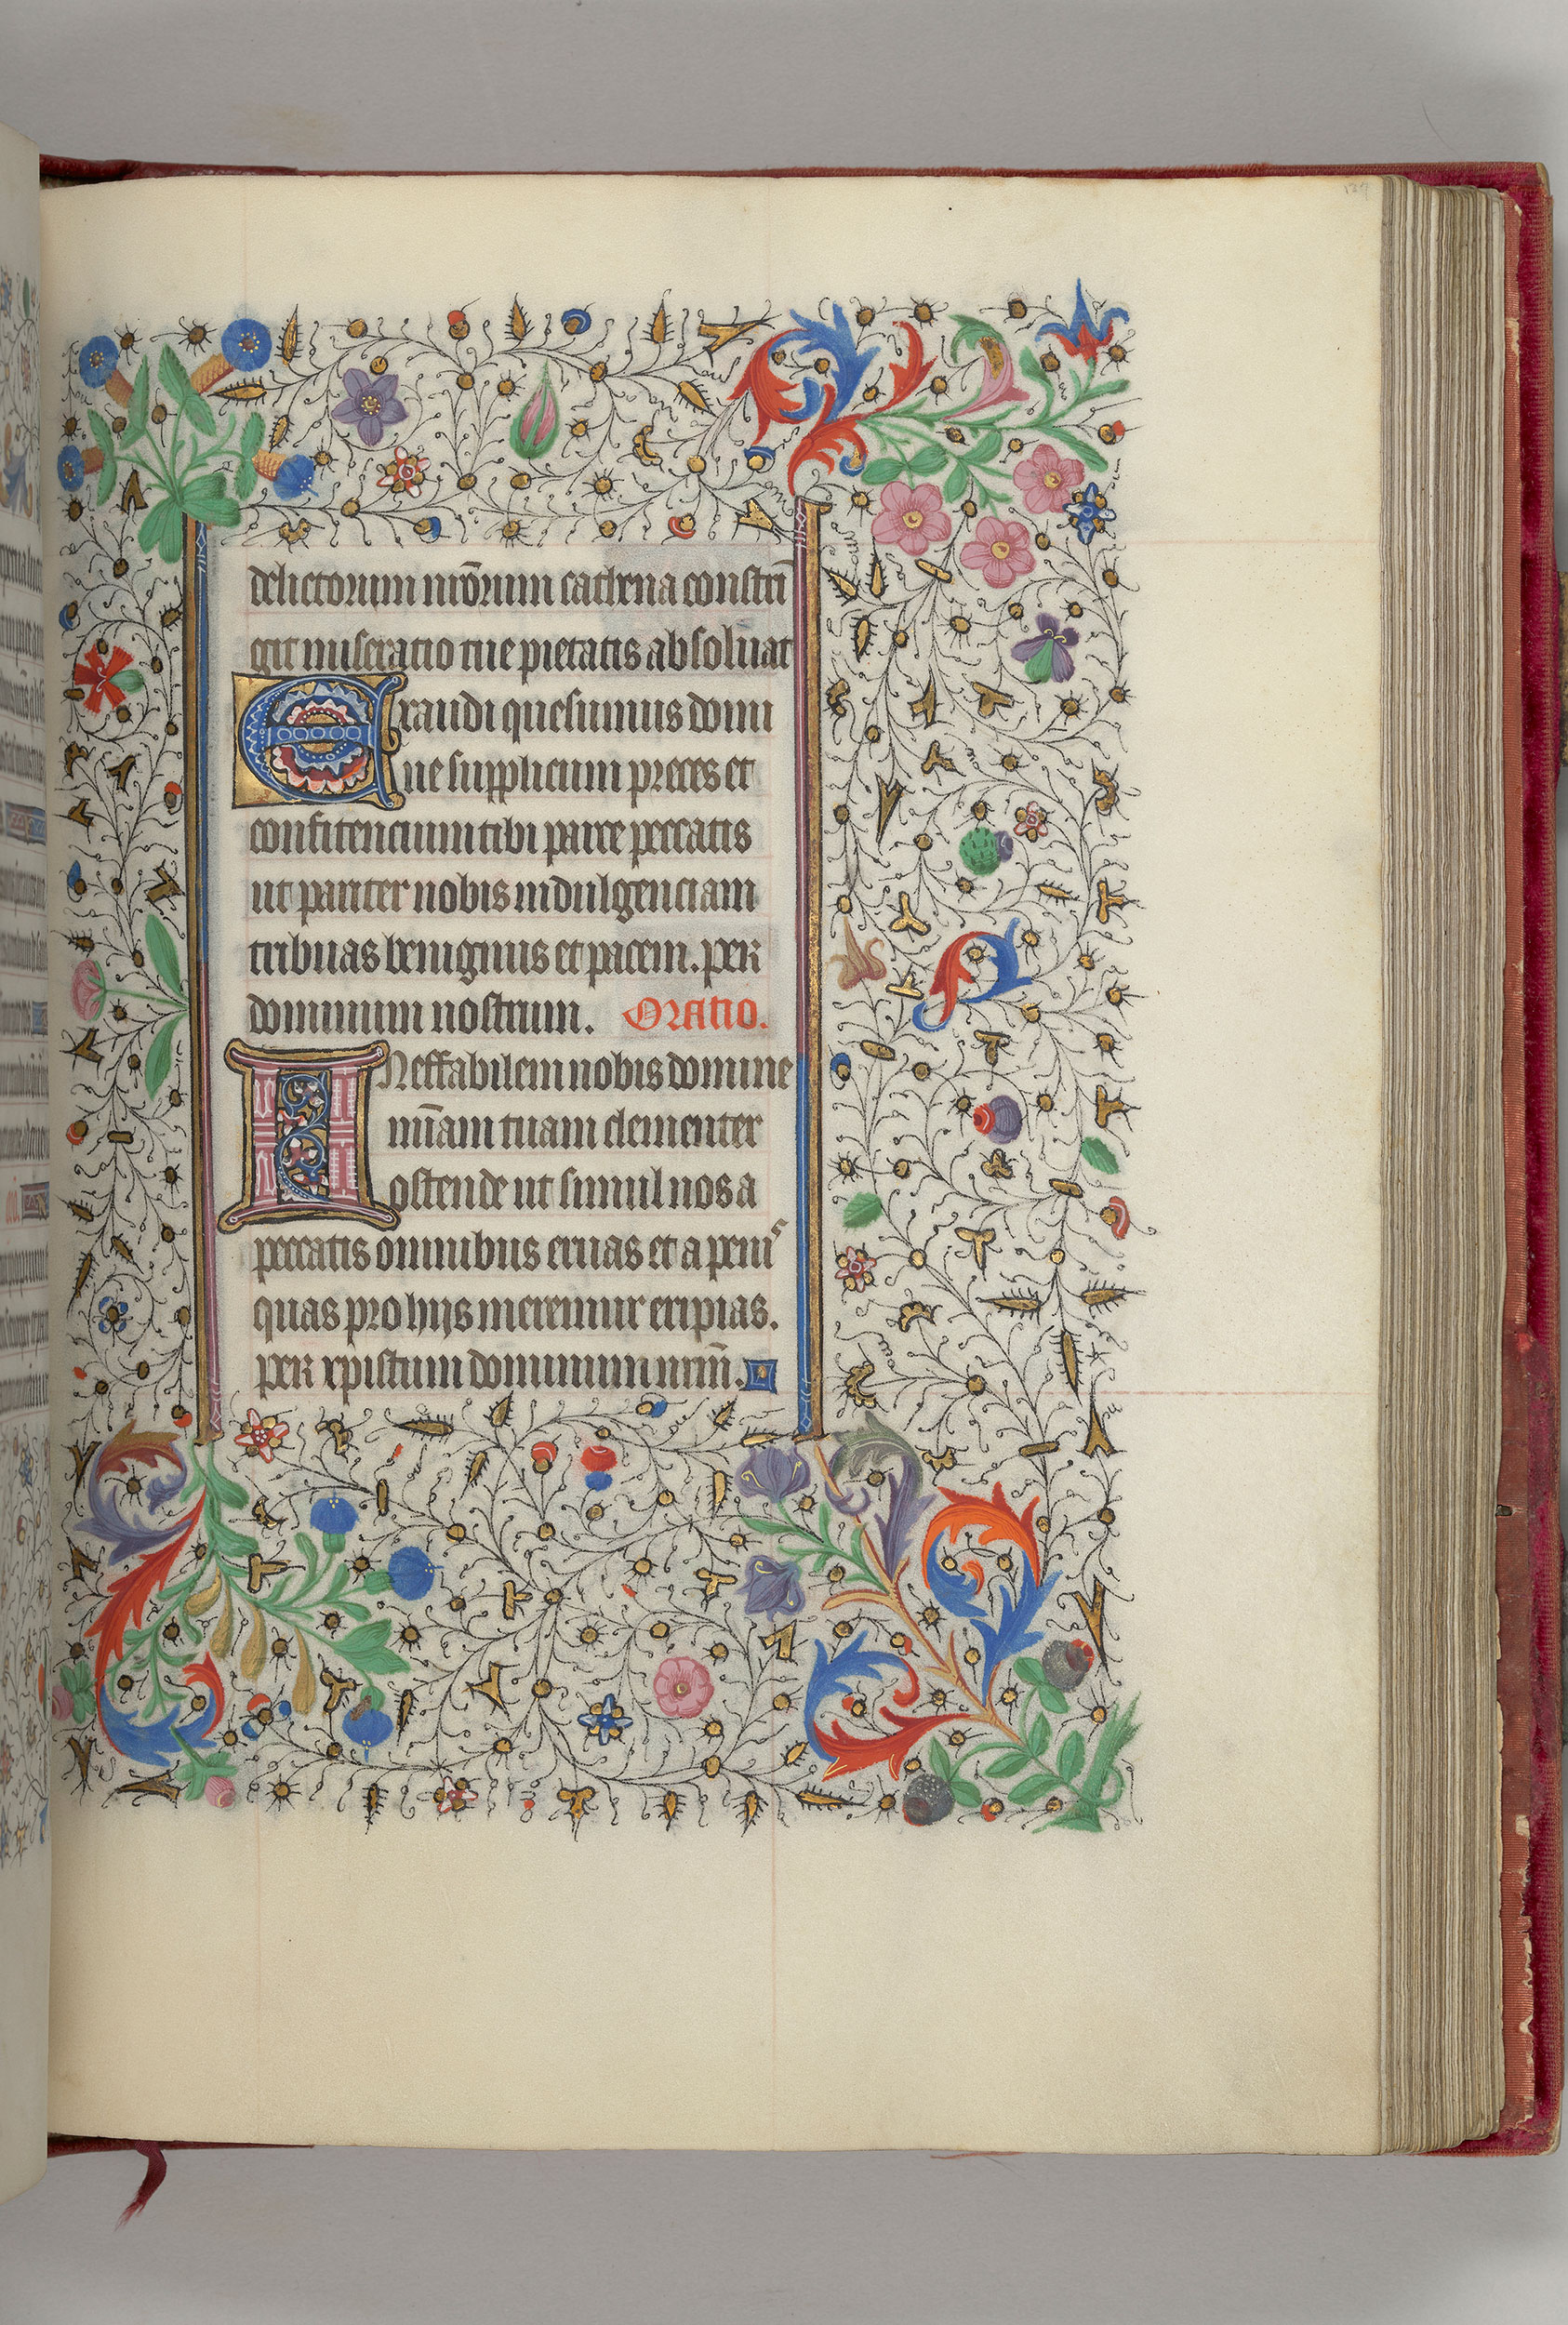 delictorum nr̄orum cathena constri
git miseratio tue pietatis absoluat
Exaudi quesumus domi
ne supplicum preces et
confitencium tibi parce peccatis
ut pariter nobis indulgenciam
tribuas benignus et pacem. per
dominum nostrum. Oratio.
INeffabilem nobis domine
mīam tuam clementer
ostende ut simul nos a
peccatis omnibus eruas et a penis
quas pro hijs meremur eripias.
per xpistum dominum nrm̄.